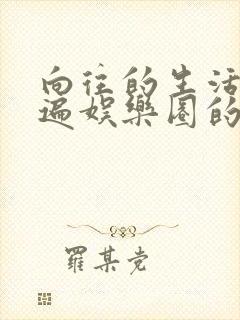 向往的生活
遍娱乐圈的
羅某党